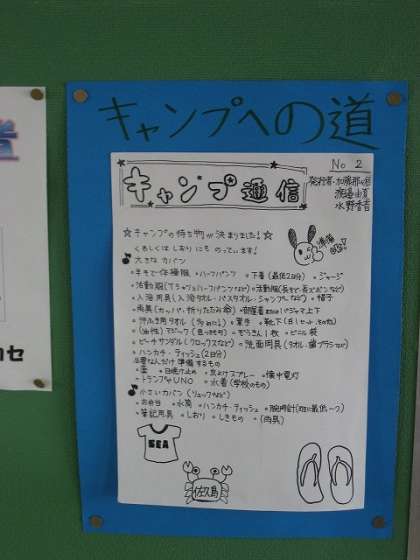 キャンプへの道
No 2
キャンプ通信
発行者・加藤
渡邉
水野
☆キャンプの持ち物が決まりました!☆
くわしくはしおりにものっています!
準備
大きなカバン
半そで体操服 ハーフパンツ 下着(最低2日分) ジャージ
活動服(Tシャツ・ハーフパンツなど) 活動服(長そで・長ズボンなど)
入浴用具(入浴タオル・バスタオル・シャンプーなど) 帽子
雨具(カッパ・折りたたみ傘) パジャマ上下
汗ふき用タオル(多めに) 軍手 靴下
(油性)マジック ぞうきん1枚 ビニル袋
ビーチサンダル(クロックスなど) 洗面用具(タオル・歯ブラシなど)
ハンカチ・ティッシュ(2日分)
必要な人だけ準備するもの
薬 日焼け止め 虫よけスプレー 懐中電灯
トランプやUNO 水着(学校のもの)
小さいカバン(リュックなど)
お弁当 水筒 ハンカチ・ティッシュ 腕時計(班に最低一つ)
筆記用具 しおり しきもの (雨具)
SEA
佐久島